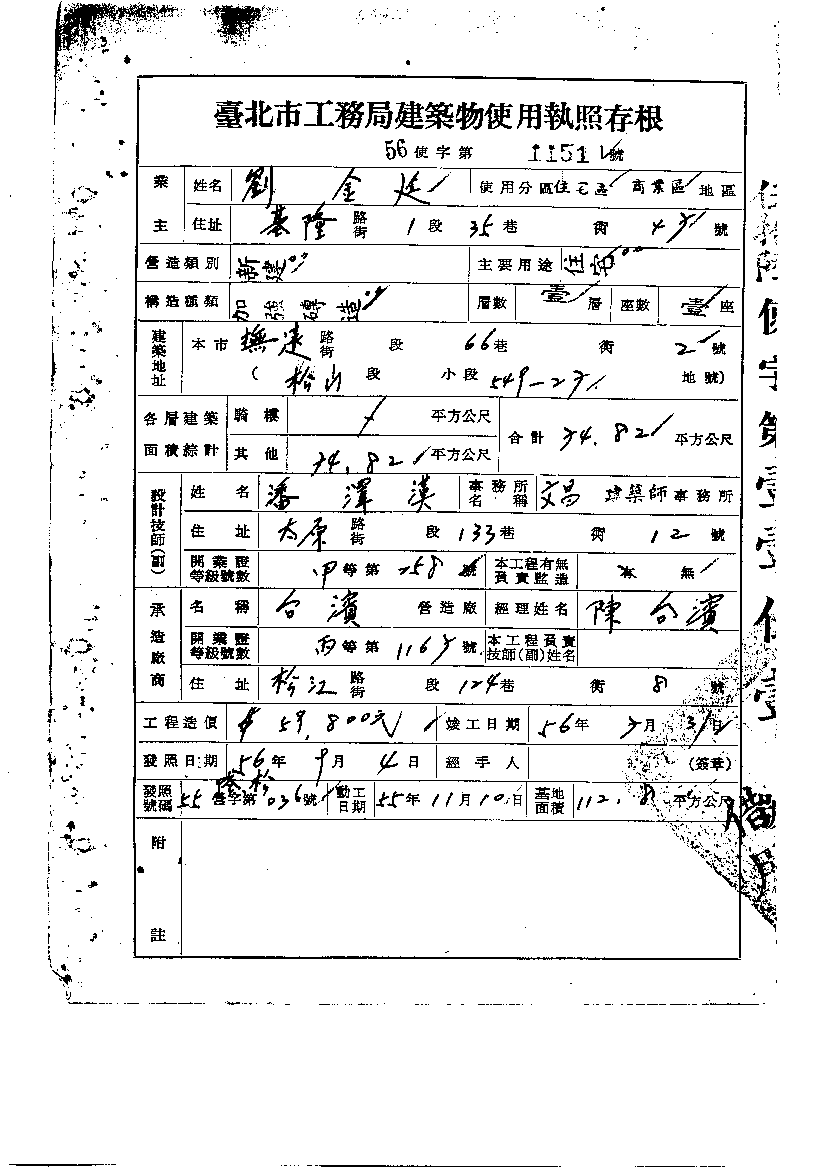 臺北市工務局建築物使用執照存根
56使字第 1151 號
業主 姓名 劉金廷 使用分區 住宅區 商業區 地區
住址 基隆 路街 1段 35巷 衖 號
營造類別 新建 主要用途 住宅
構造種類 加強磚造 層數 壹層 座數 壹座
建築地址 本市 撫遠 路街 段 66巷 衖 2號
(松山段 小段 地號)
各層建築面積綜計 騎樓 平方公尺 合計 平方公尺
其他 平方公尺
設計技師(副) 姓名 潘澤漢 事務所名稱 文昌 建築師事務所
住址 太原 路街 段 133巷 衖 12號
開業證等級號數 甲等第 號 本工程有無負責監造 有 無
承造廠商 名稱 台濱 營造廠 經理姓名 陳台濱
開業證等級號數 丙等第 號 本工程負責技師(副)姓名
住址 松江 路街 段 124巷 衖 8號
工程造價 $59,800元 竣工日期 56年 月 31日
發照日期 56年9月4日 經手人 (簽章)
發照號碼 55 營松 字第036號 動工日期 55年11月10日 基地面積 112.8 平方公尺
附註
使字第壹壹伍壹